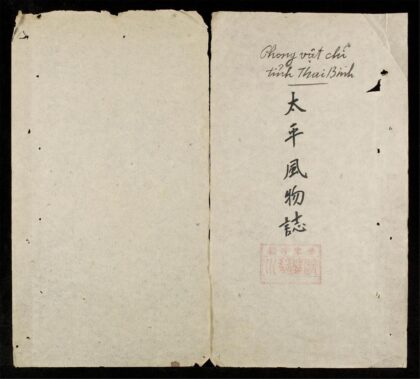 Phong vật chí
tỉnh Thái Bình
太平風物誌